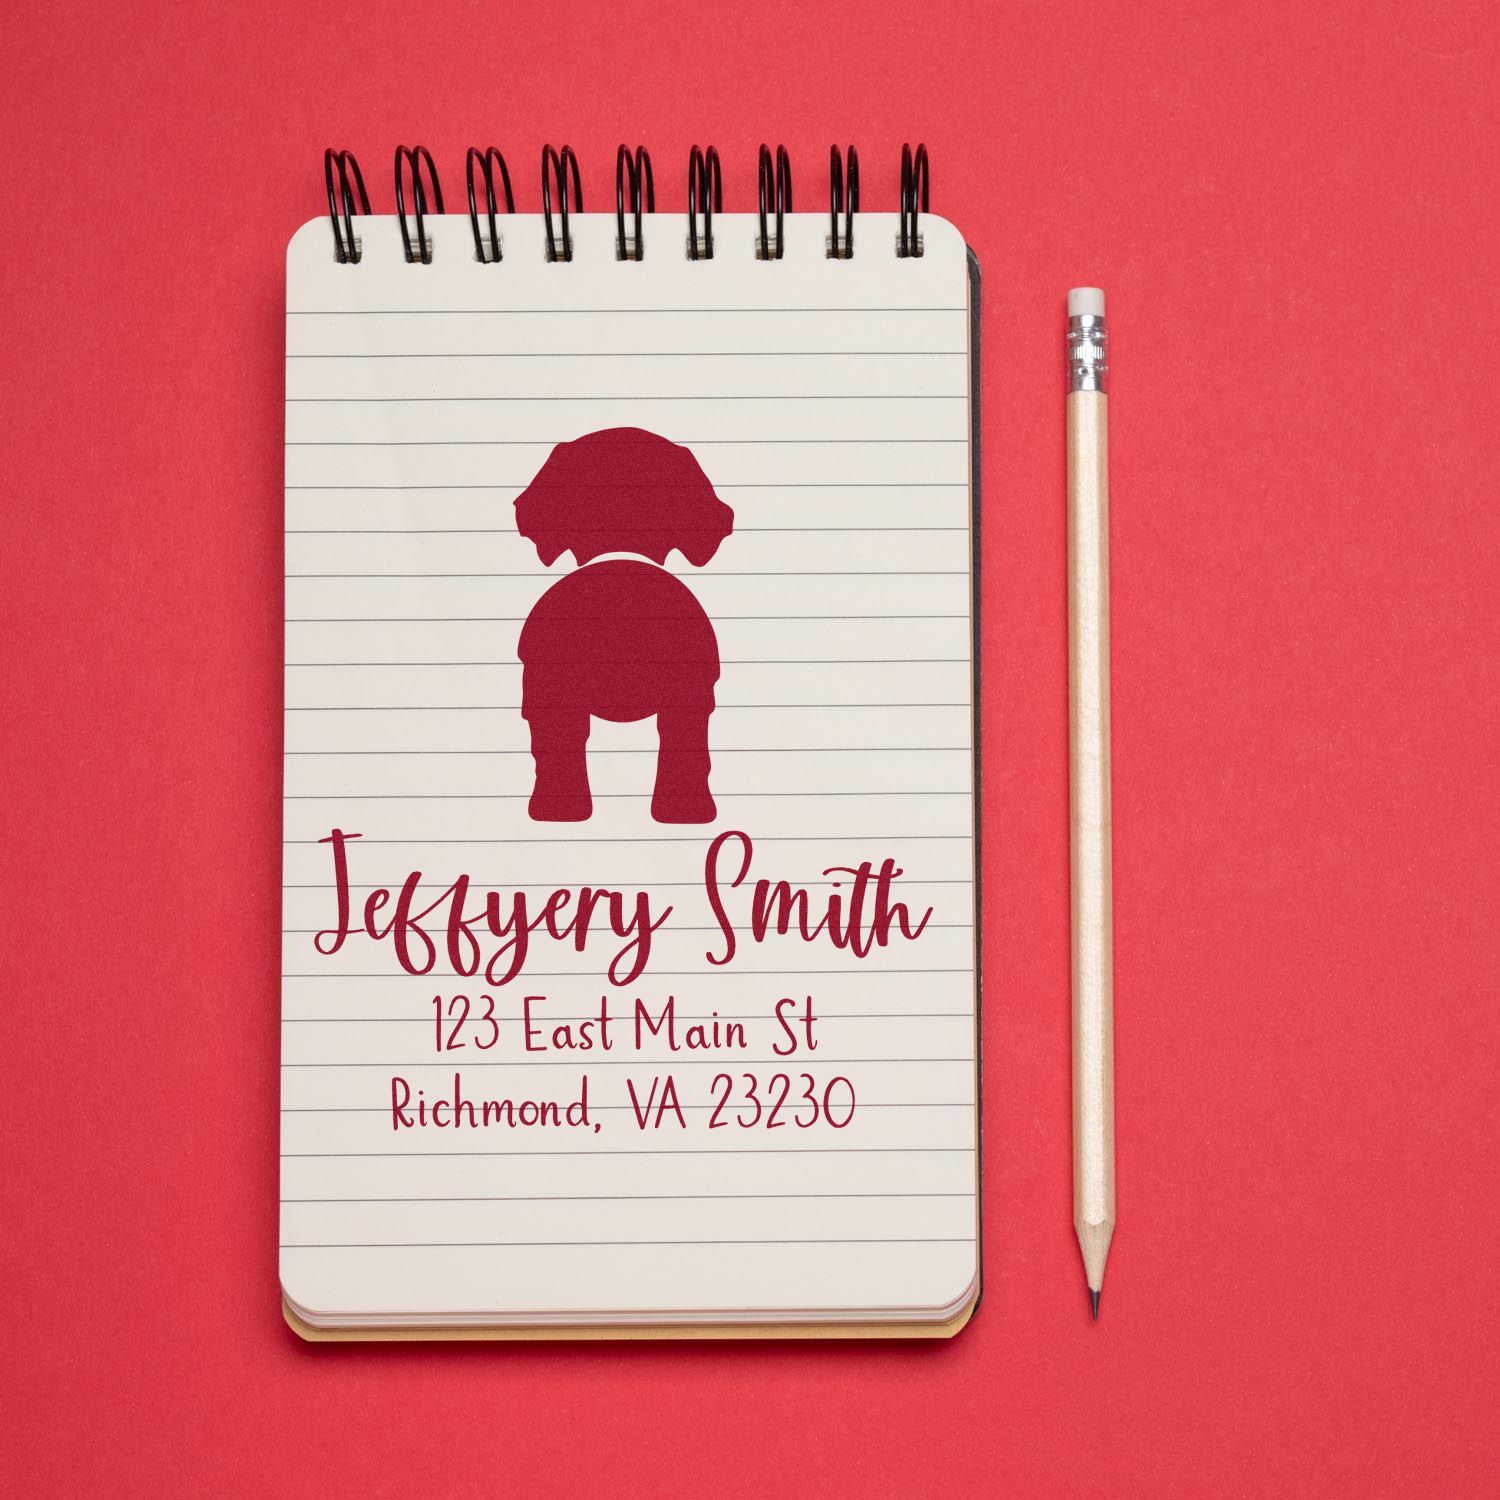 Jeffyery Smith
123 East Main St
Richmond, VA 23230